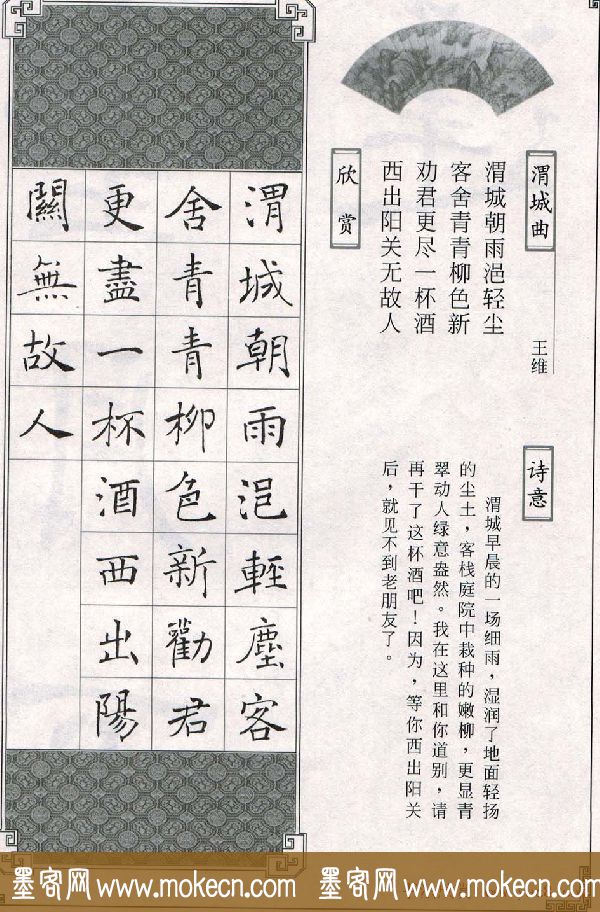 渭城曲
王维
渭城朝雨浥轻尘
客舍青青柳色新
劝君更尽一杯酒
西出阳关无故人
欣赏
诗意
渭城早晨的一场细雨，湿润了地面轻扬
的尘土，客栈庭院中栽种的嫩柳，更显青
翠动人绿意盎然。我在这里和你道别，请
再干了这杯酒吧！因为，等你西出阳关
后，就见不到老朋友了。
渭城朝雨浥輕塵客
舍青青柳色新勸君
更盡一杯酒西出陽
關無故人
墨客网 www.mokecn.com 墨客网 www.mokecn.com